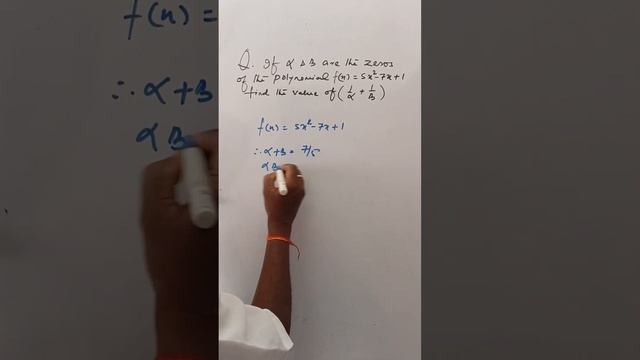 Q. If α & β are the zeros
of the polynomial f(x) = 5x²-7x+1
find the value of (1/α + 1/β)
f(x) = 5x²-7x+1
∴ α+β = 7/5
αβ